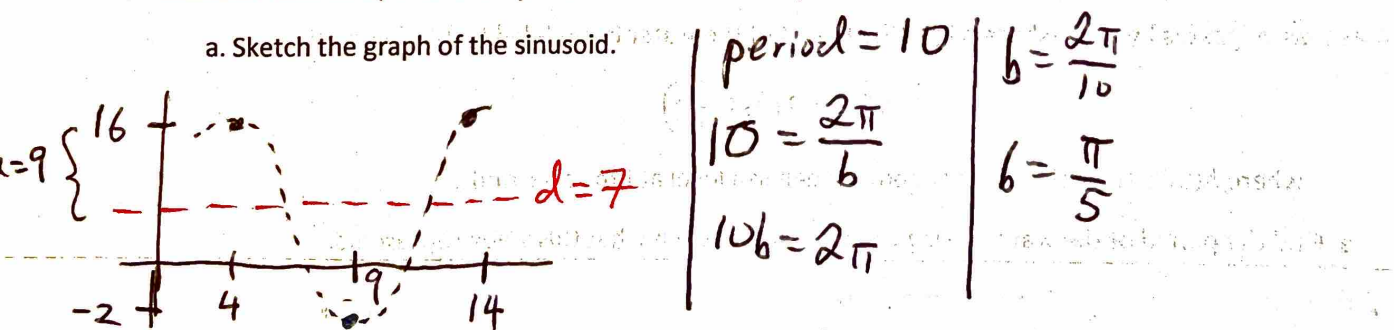 a. Sketch the graph of the sinusoid.
16
=9
d=7
-2
4
9
14
period = 10
10 = 2π/b
10b = 2π
b = 2π/10
b = π/5